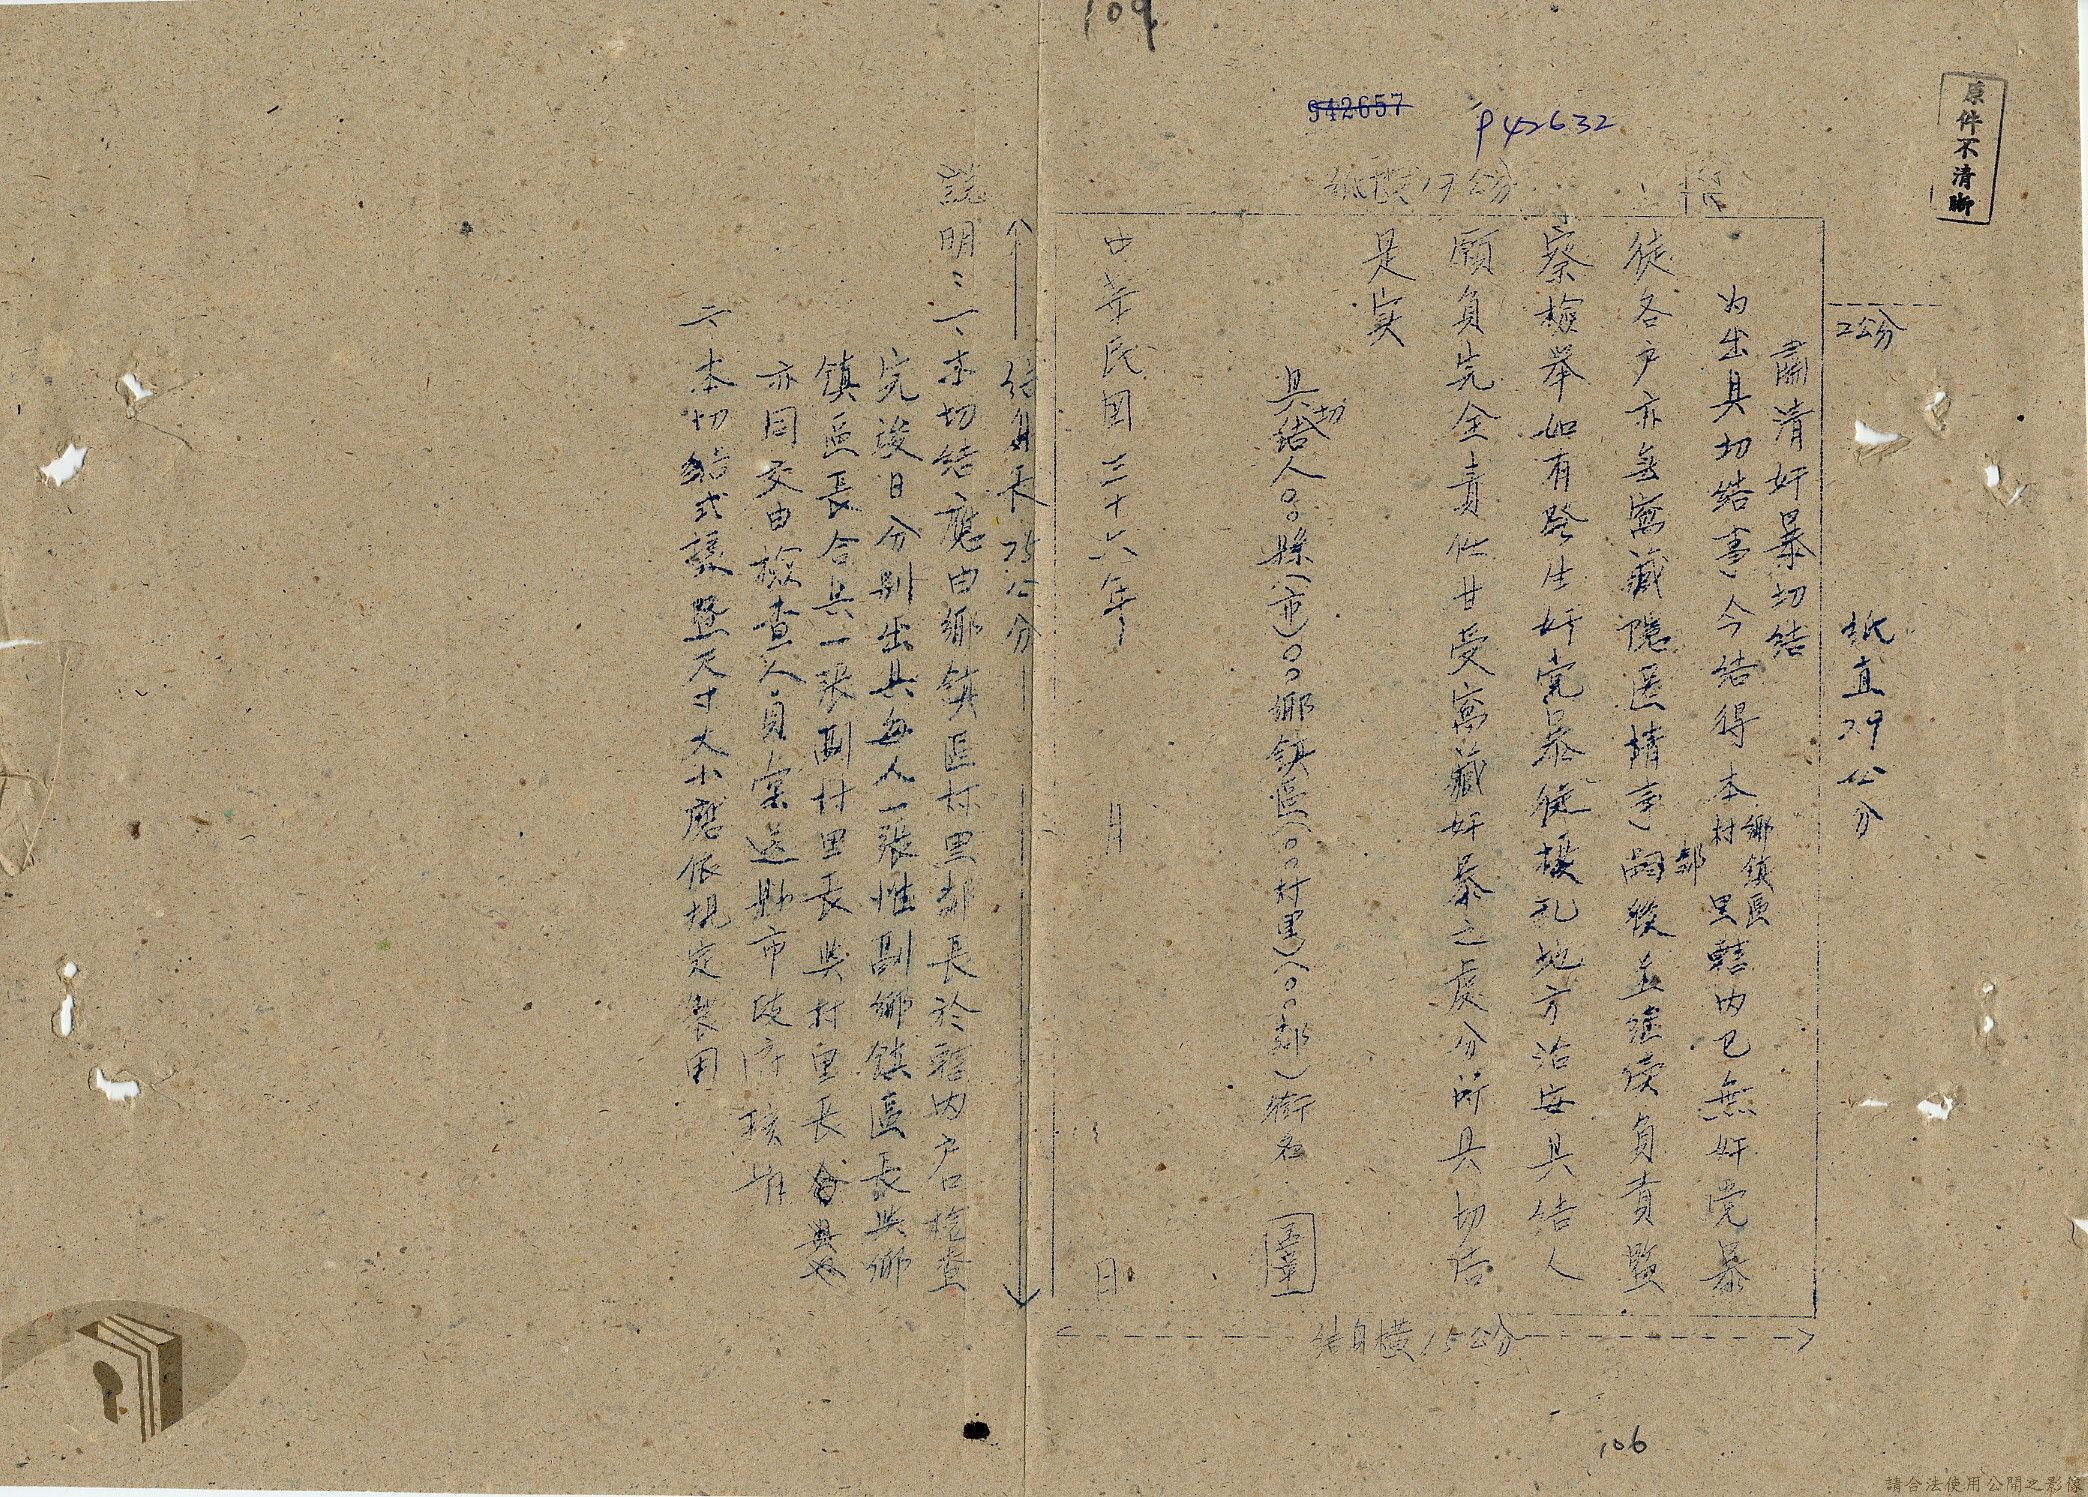 109
942657
P42632
原件不清晰
附
紙橫17公分
2公分
紙直29公分
肅清奸暴切結
為出具切結事今結得本鄉鎮區村里鄰轄內已無奸党暴
徒各戶亦無窩藏隱匿情事嗣後並繼續負責監
察檢舉如有發生奸党暴徒擾乱地方治安具結人
願負完全責任甘受窩藏奸暴之處分所具切结
是实
具切結人〇〇縣(市)〇〇鄉鎮區(〇〇村里)(〇〇鄰)銜名 蓋章
中華民國三十六年 月 日
結身長25公分
結身橫15公分
說明：一、本切結應由鄉鎮區村里鄰長於轄內户口檢查
完竣日分別出具每人一張惟副鄉鎮區長與鄉
鎮區長合具一張副村里長與村里長合具
亦同交由檢查人員彙送縣市政府核備
二、本切結式樣暨尺寸大小應依規定製用
106
請合法使用公開之影像